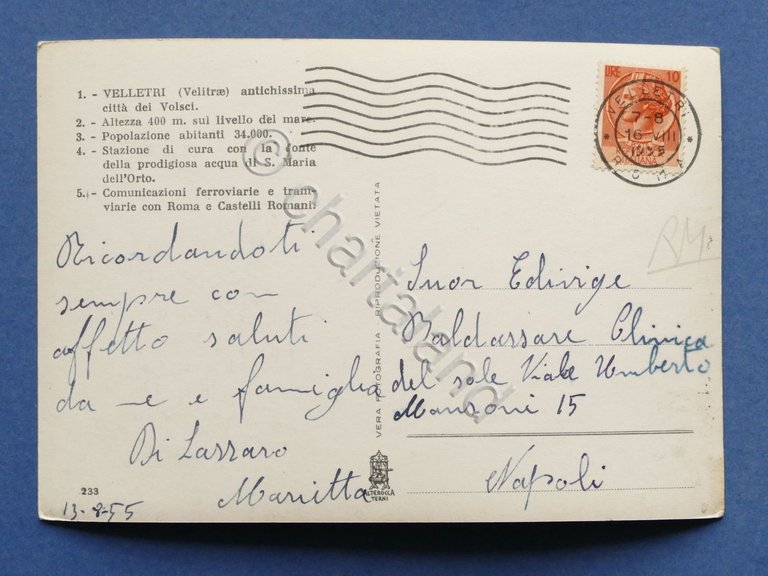 1. - VELLETRI (Velitræ) antichissima
città dei Volsci.
2. - Altezza 400 m. sul livello del mare.
3. - Popolazione abitanti 34.000.
4. - Stazione di cura con la fonte
della prodigiosa acqua di S. Maria
dell'Orto.
5. - Comunicazioni ferroviarie e tram-
viarie con Roma e Castelli Romani.
Ricordandoti
sempre con
affetto saluti
da me e famiglia
Di Lazzaro
Marietta
233
13-8-55
VERA FOTOGRAFIA - RIPRODUZIONE VIETATA
ALTEROCCA
TERNI
LIRE 10
ITALIANA
VELLETRI
7-8
16 VIII
1955
ROMA
RM.
Suor Edivige
Baldassare Clinica
del sole Viale Umberto
Manzoni 15
Napoli
© chartaland